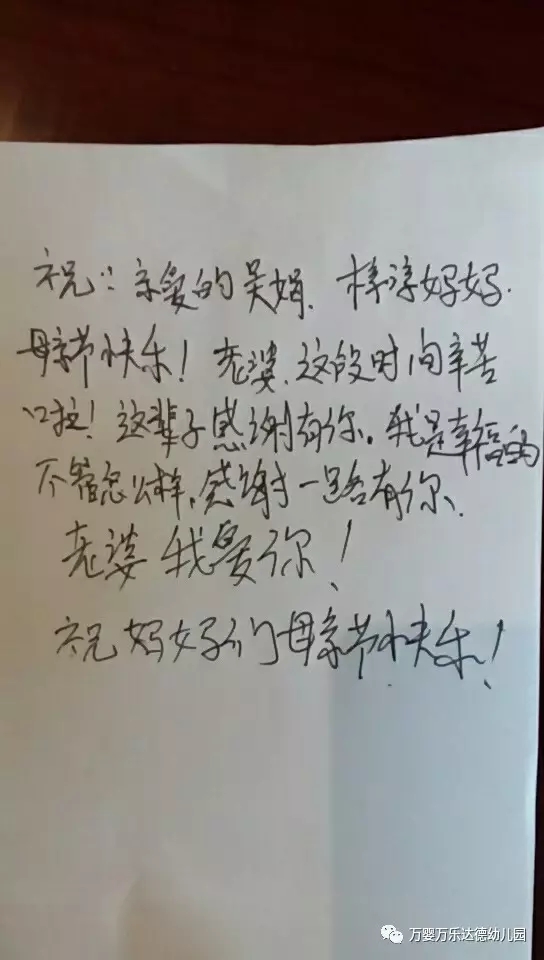 祝：亲爱的吴娟、梓淳妈妈.
母亲节快乐！老婆、这段时间辛苦
啦！这辈子感谢有你。我是幸福的
不管怎么样，感谢一路有你、
老婆我爱你！
祝妈妈们母亲节快乐！
万婴万乐达德幼儿园